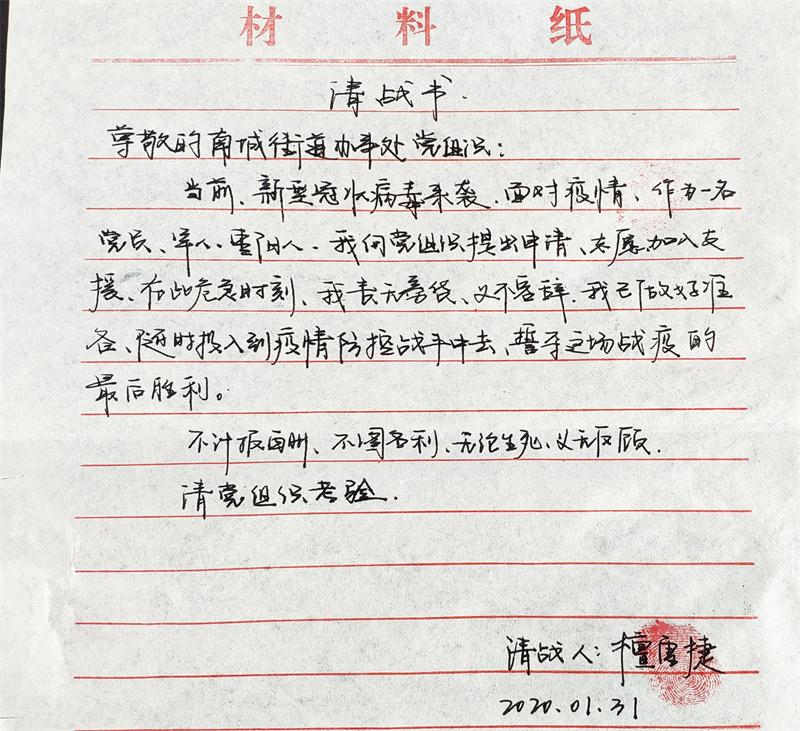 材料纸
请战书.
尊敬的南城街道办事处党组织：
当前、新型冠状病毒来袭、面对疫情、作为一名
党员、军人、重阳人、我向党组织提出申请、志愿加入支
援、在此危急时刻、我责无旁贷、义不容辞.我已做好准
备、随时投入到疫情防控战争中去、誓夺这场战疫的
最后胜利。
不计报酬、不图名利、无论生死、义无反顾.
请党组织考验.
请战人：檀唐捷
2020.01.31